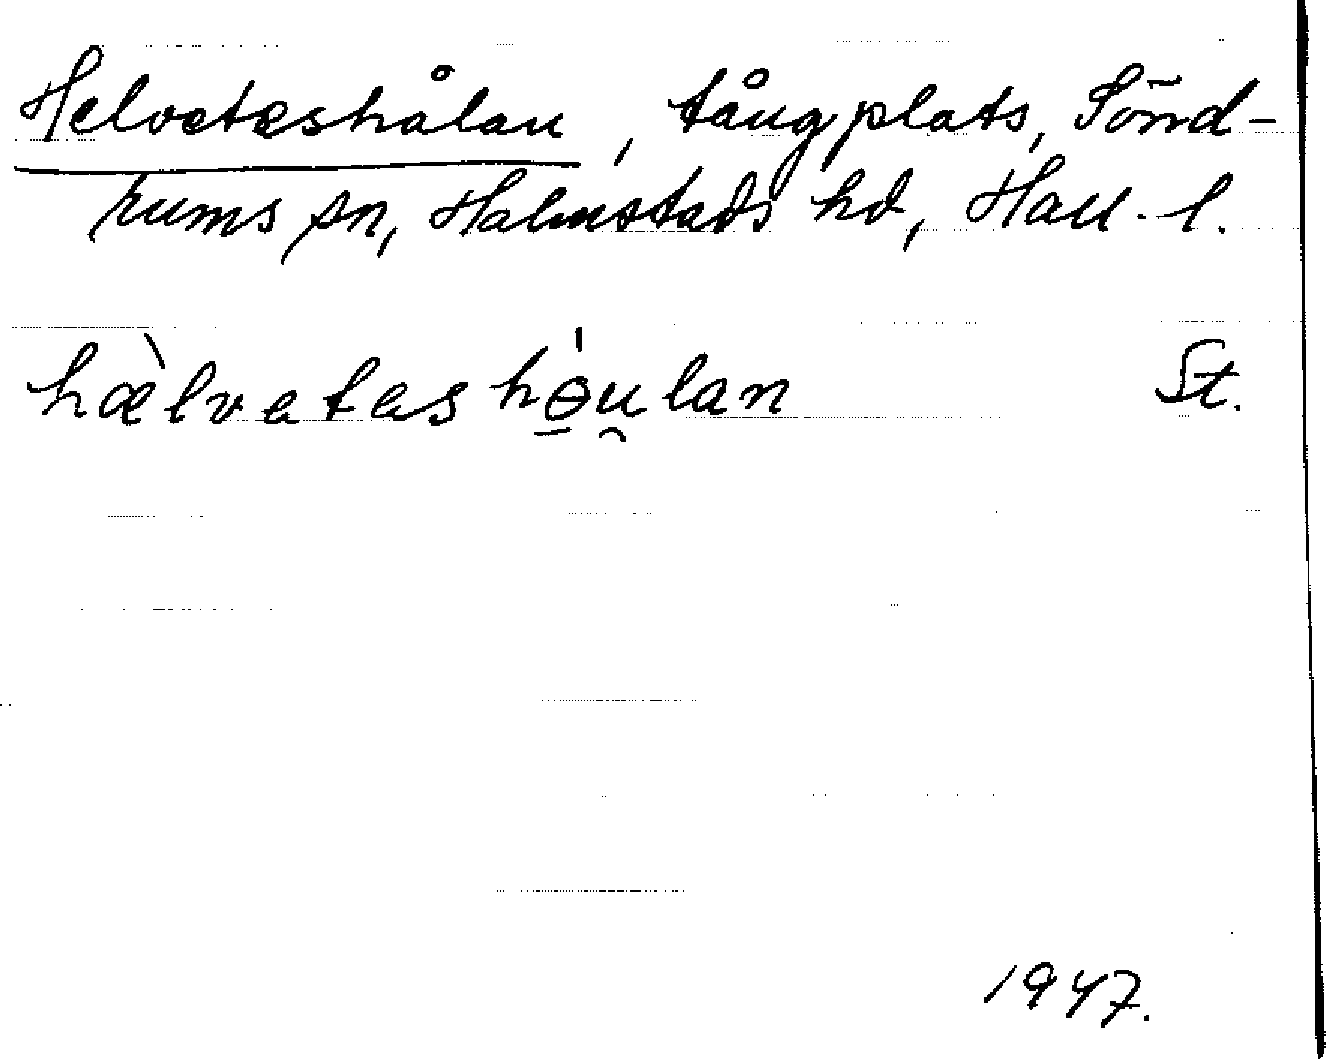 Helveteshålan, tångplats, Sönd-
rums sn, Halmstads hd, Hall. l.
hæ̀lvetes hɵ̱́u̯lan St.
1947.